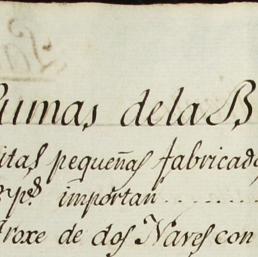 Sumas dela B
itas pequeñas fabricada
ps importan
roxe de dos Naves con